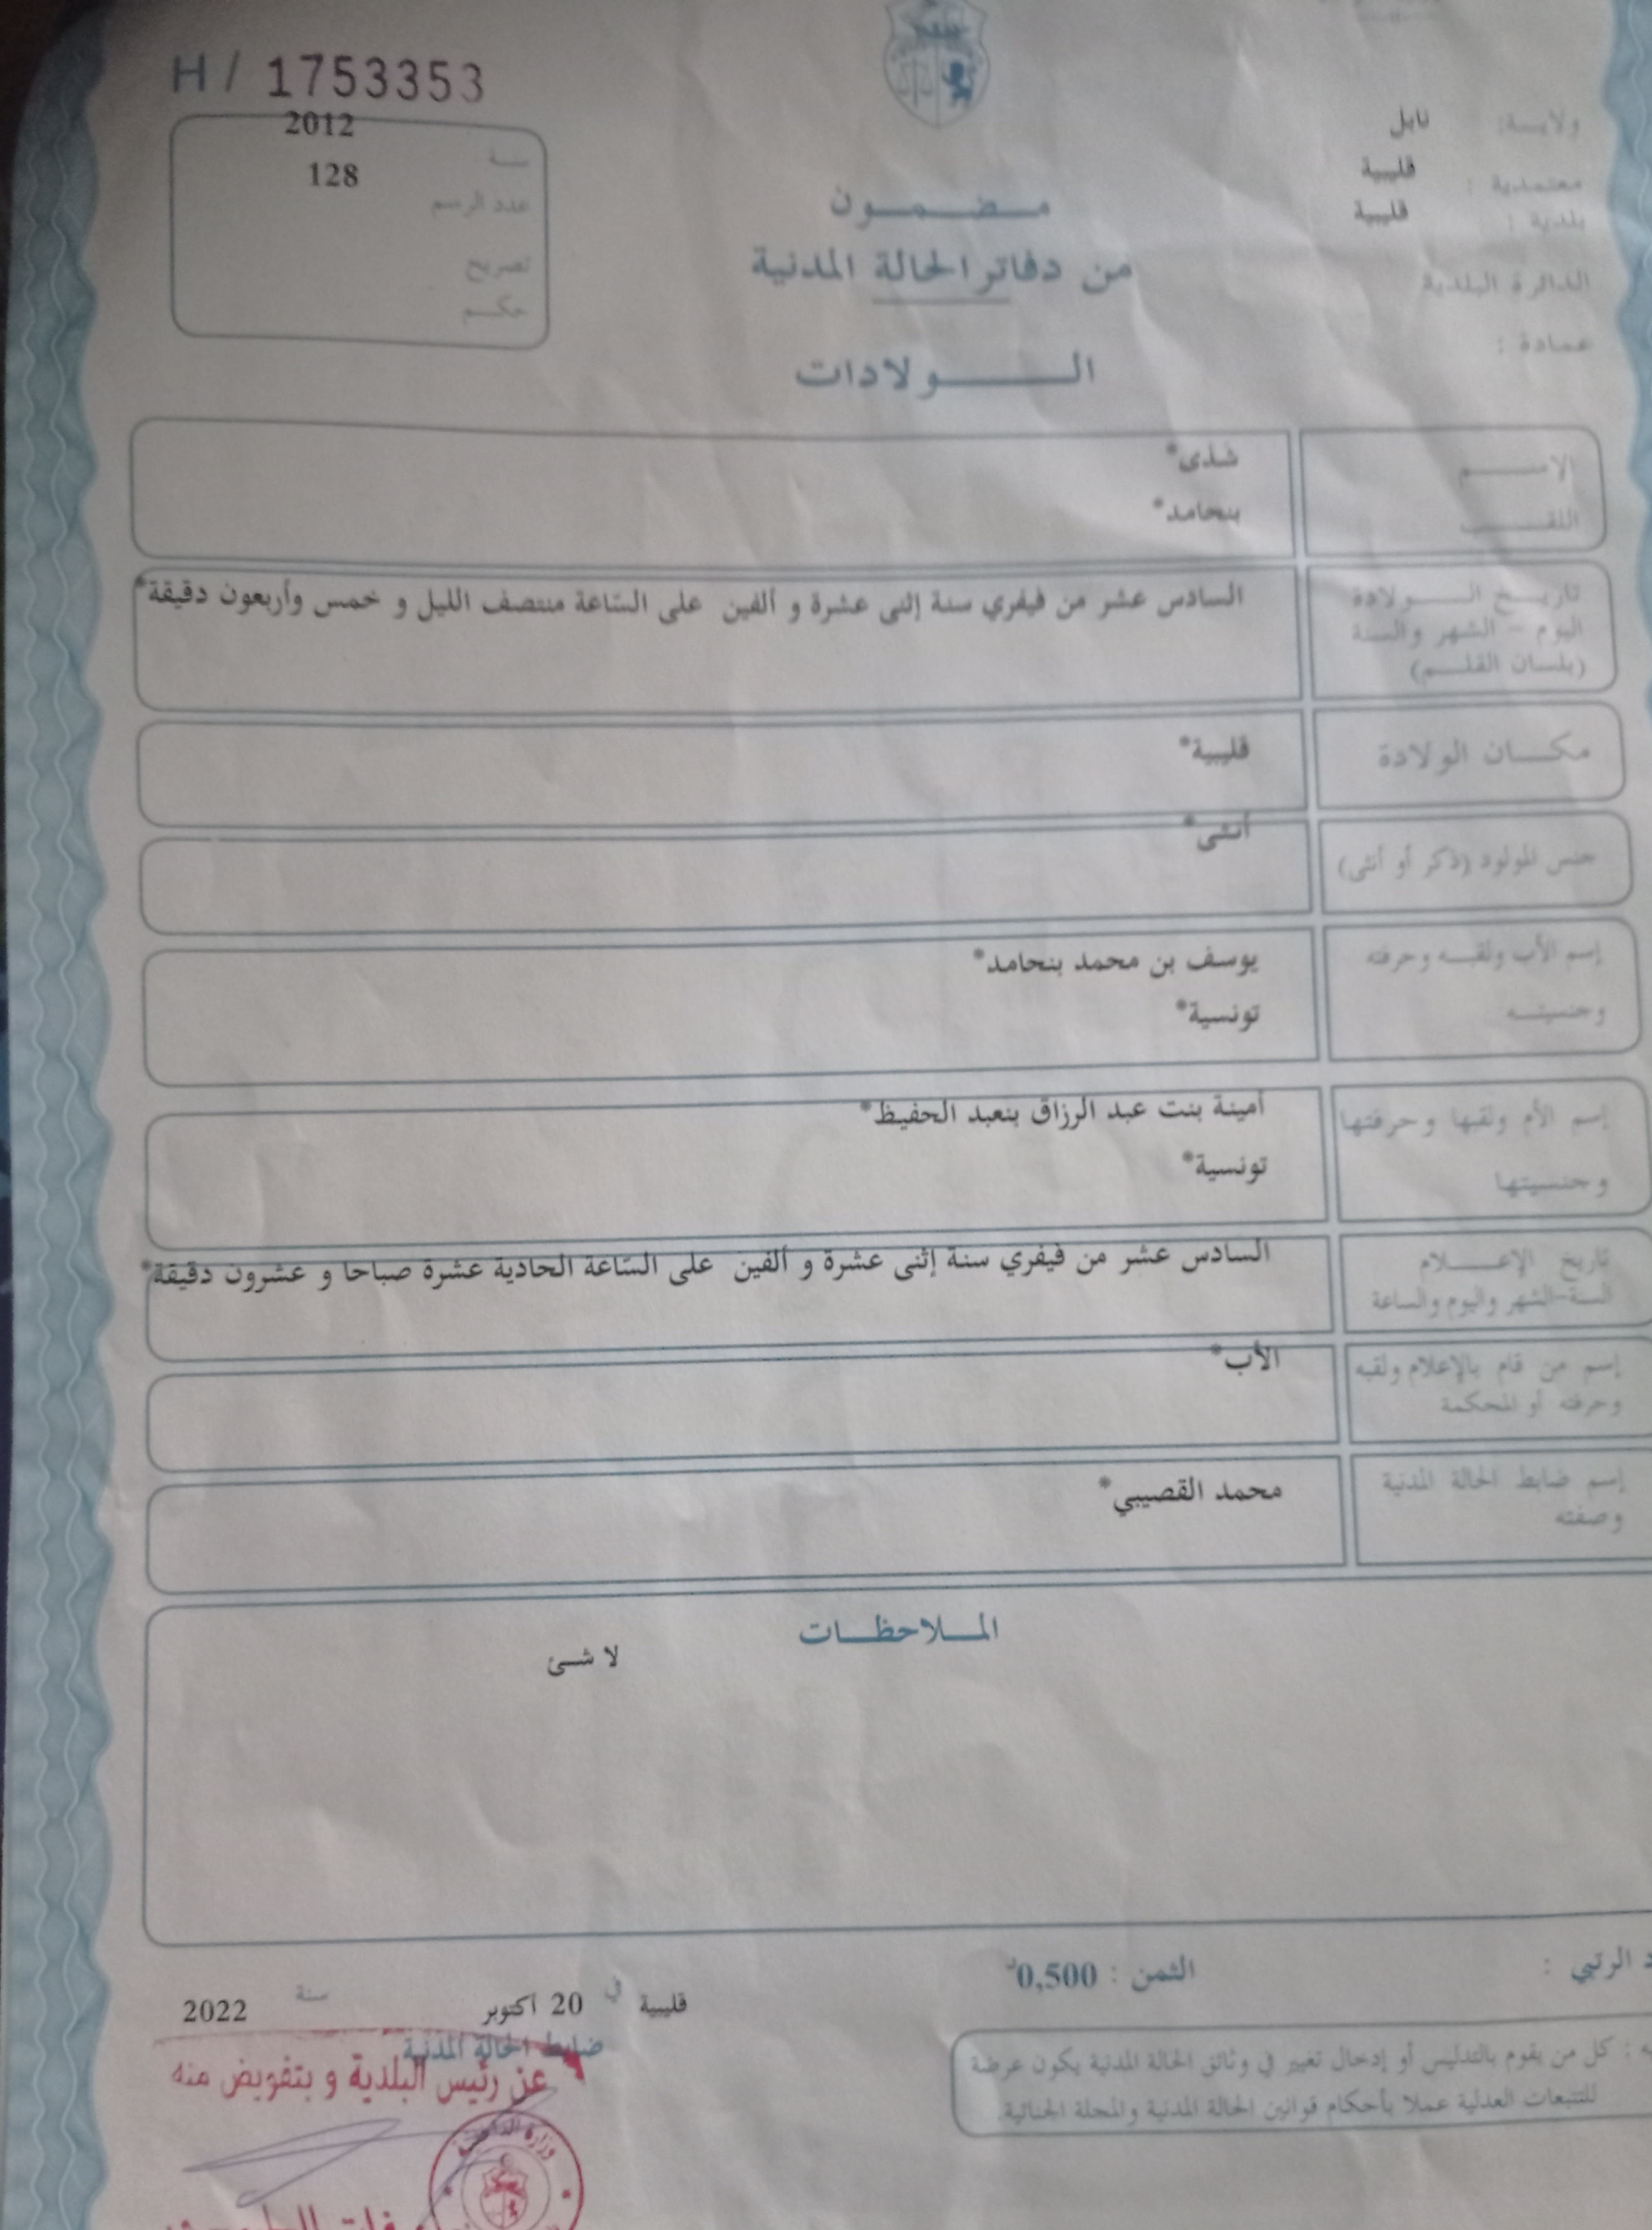 H / 1753353
ولايـة: نابل
معتمدية : قليبية
بلدية : قليبية
الدائرة البلدية
عمادة :
2012
سنة
128
عدد الرسم
تصريح
حكم
مضمون
من دفاتر الحالة المدنية
الولادات
الاسم شذى*
اللقب بنحامد*
تاريخ الولادة
اليوم - الشهر والسنة
(بلسان القلم)
السادس عشر من فيفري سنة إثنى عشرة و ألفين على السّاعة منتصف الليل و خمس وأربعون دقيقة*
مكان الولادة قليبية*
جنس المولود (ذكر أو أنثى) أنثى*
إسم الأب ولقبه وحرفته يوسف بن محمد بنحامد*
وجنسيته تونسية*
إسم الأم ولقبها وحرفتها أمينة بنت عبد الرزاق بنعبد الحفيظ*
وجنسيتها تونسية*
تاريخ الإعلام
السنة-الشهر واليوم والساعة
السادس عشر من فيفري سنة إثنى عشرة و ألفين على السّاعة الحادية عشرة صباحا و عشرون دقيقة*
إسم من قام بالإعلام ولقبه
وحرفته أو المحكمة
الأب*
إسم ضابط الحالة المدنية
وصفته
محمد القصيبي*
الملاحظات
لا شئ
الرتبي :
الثمن : 0,500د
قليبية في 20 أكتوبر سنة 2022
ضابط الحالة المدنية
عن رئيس البلدية و بتفويض منه
كل من يقوم بالتدليس أو إدخال تغيير في وثائق الحالة المدنية يكون عرضة
للتتبعات العدلية عملا بأحكام قوانين الحالة المدنية والمجلة الجنائية.
وزارة الداخلية